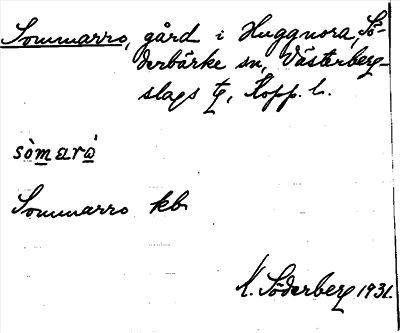 Sommarro, gård i Huggnora, Sö-
derbärke sn, Västerberg-
slags tg, Kopp. l.
sòmarò
Sommarro kb
K. Söderberg 1931.